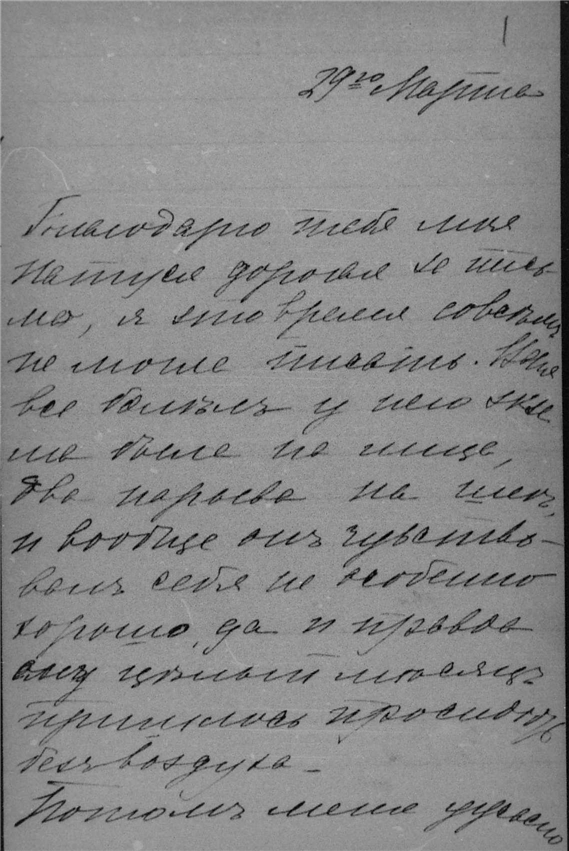 1
29го Марта
Благодарю тебя моя
Натуся дорогая за пись-
мо, я это время совсѣмъ
не могла писать. Ваня
все болѣлъ у него экзе
ма была на лицѣ,
два нарыва на шеѣ,
и вообще онъ чувство-
валъ себя не особенно
хорошо, да и правда
ему цѣлый мѣсяцъ
пришлось просидѣть
безъ воздуха –
Потомъ меня ужасно